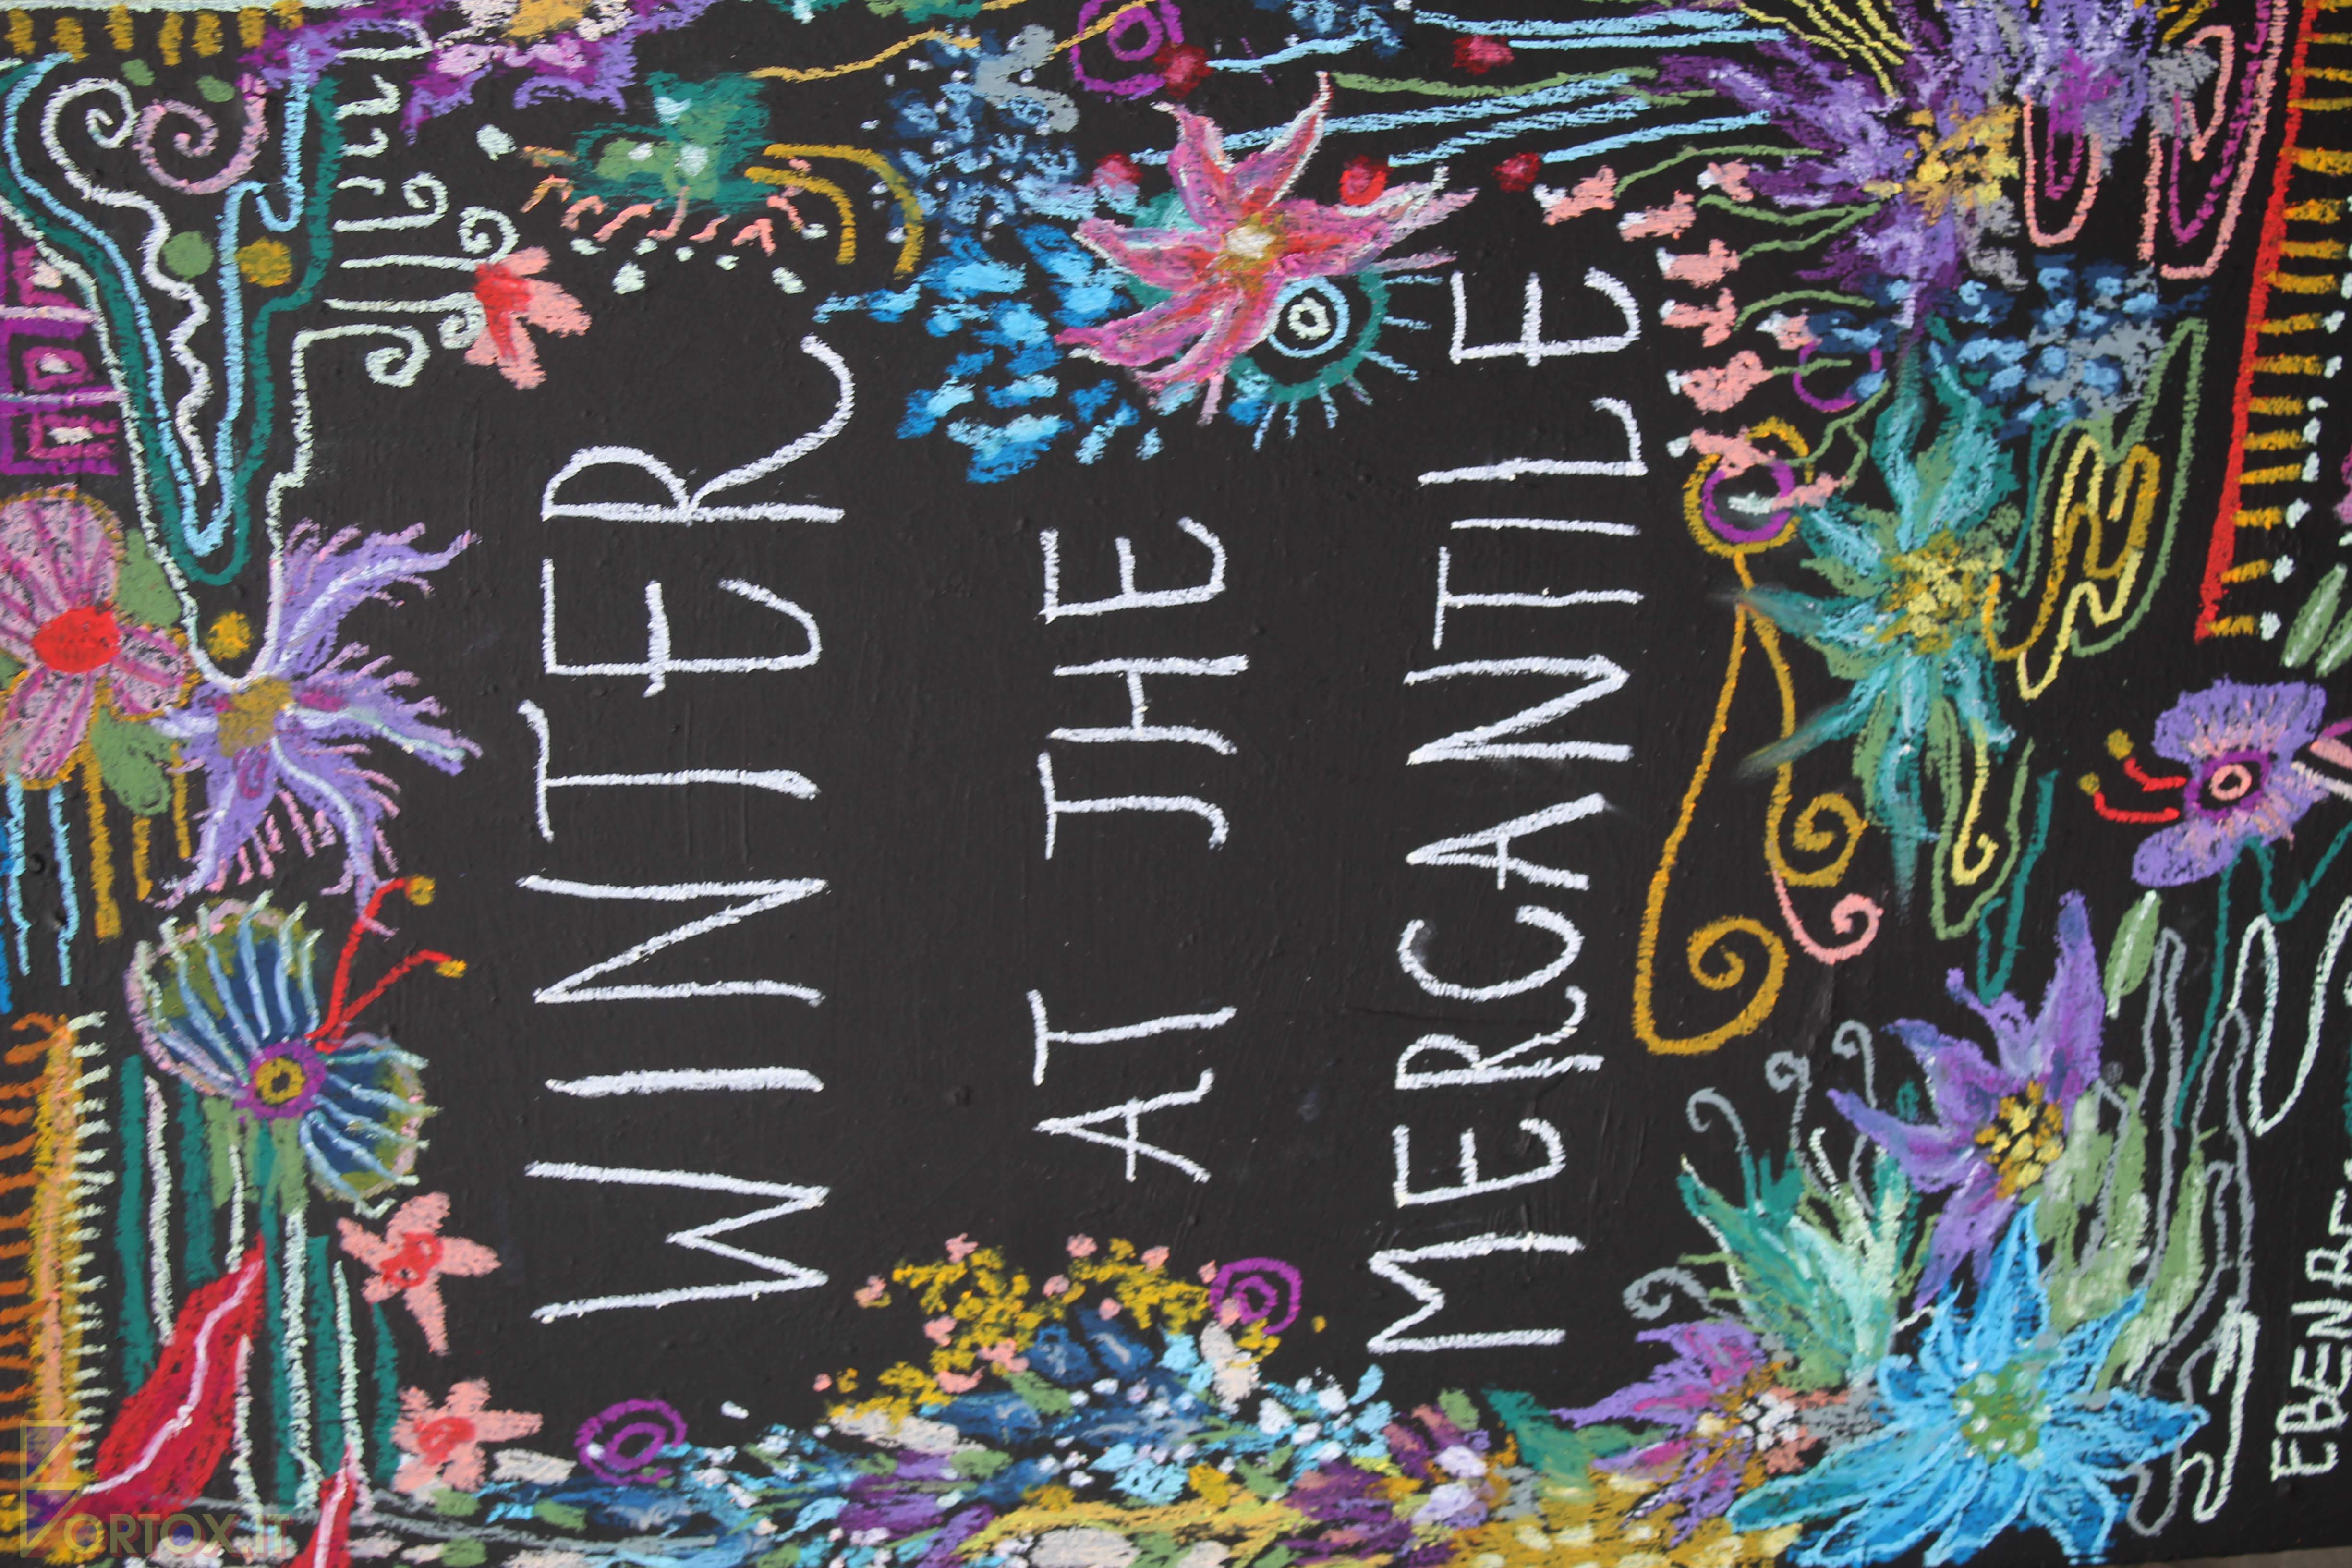 WINTER
AT THE
MERCANTILE
VORTOX.IT